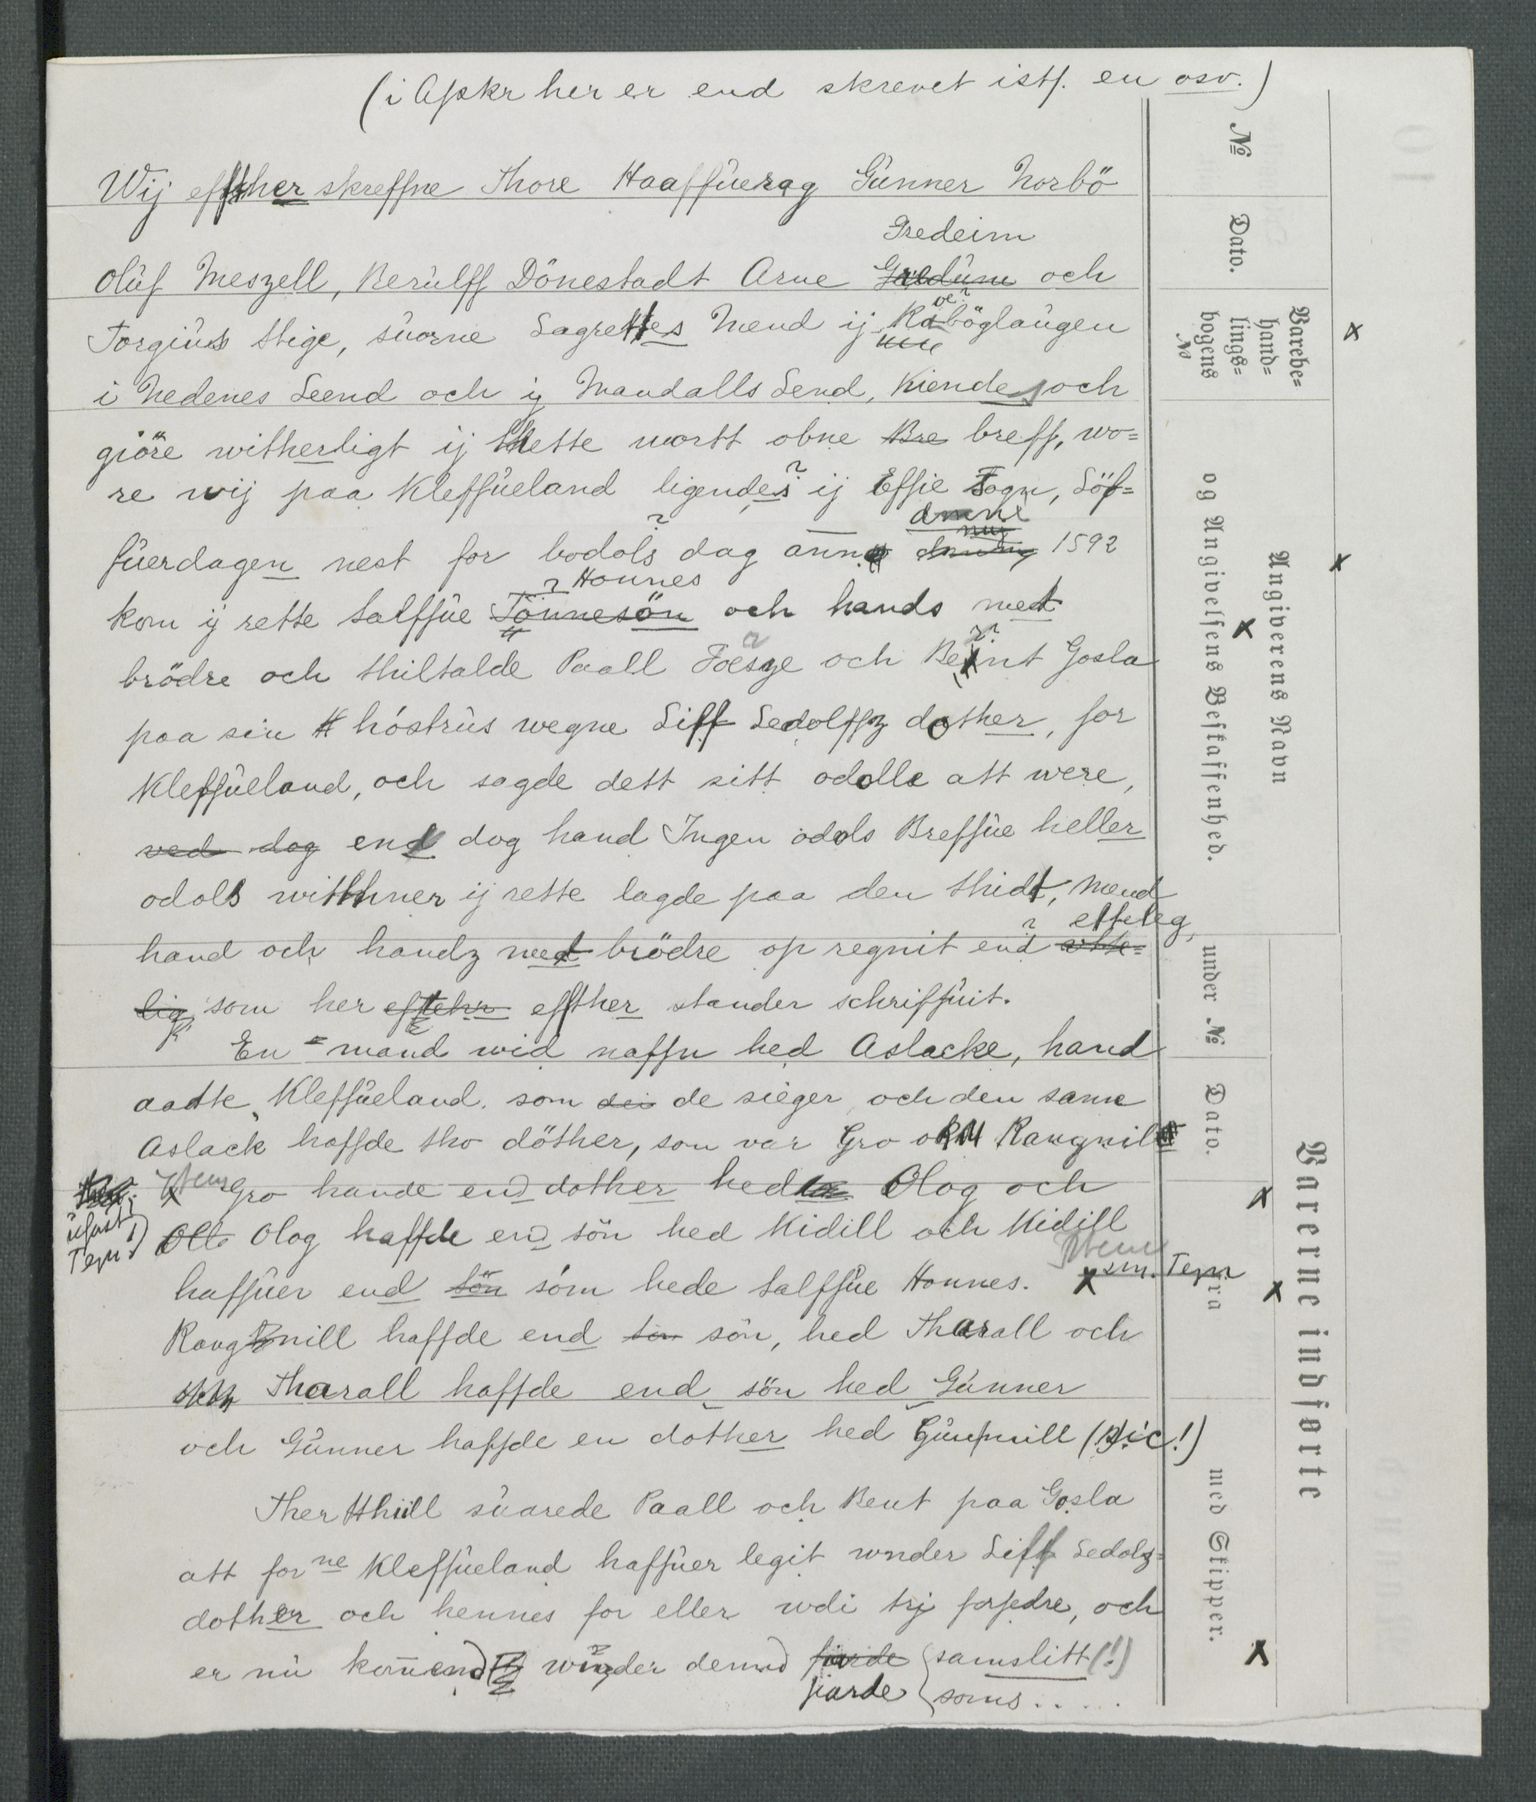 (i Afskr her er end skrevet istf. en osv.)
Wij effther skreffne Thore Haaffüerag Günner Norbö
Gredeim
Olüf Meszell, Berülff Dönestadt Arne Gredüm och
Torgiüs Stige, süorne Lagrettes Mend ij Röböglaugen
i Nedenes Leend och ij Mandalls Lend, Kiendes och
giöre witherligt ij thette wortt obne Bre breff, wo=
re wij paa Kleffüeland ligendes ij Effie Sogn, Löf=
füerdagen nest for bodols dag anno 1592
Honnes
kom ij rette Salffüe Tönnesön och hands med
brödre och thiltalde Paall Foesze och Beint Gosla
paa sin höstrüs wegne Siff Sedolffz dother, for
Kleffüeland, och sagde dett sitt odolle att were,
ved dog end dog hand Ingen odols Breffüe heller
odols withner ij rette lagde paa den thidt, mend
effteleg,
hand och handz med brödre op regnit end
lig, som her efftehr effther stander schriffüit.
En mand wid naffn hed Aslacke, hand
aadte Kleffüeland. som de sieger, och den same
Aslack haffde tho döther, som var Gro och Rangnil
Item Gro hande en dother hed Olog och
ufust
Tegn!)
Olo Olog haffde en sön hed Kidill och Kidill
Item
sm. Tegn
haffüer end sön som hede Salffüe Honnes.
Rangnill haffde end sön, hed Tharall och
och Tharall haffde end sön hed Günner
och Günner haffde en dother hed Günnill (sic!)
Ther thill süarede Paall och Bent paa Gosla
att for ne Kleffüeland haffüer legit wnder Siff Sedolz=
dother och hennes for eller wdi trij forfedre, och
er nü kommend winder dend fiorde samslitt (!)
fiarde soms . . . . .
No
Dato.
Varebe=
hand=
lings=
bogens
No
og Angivelsens Beskaffenhed.
Angiverens Navn
under No
Dato.
fra
Varerne indførte
med Skipper.